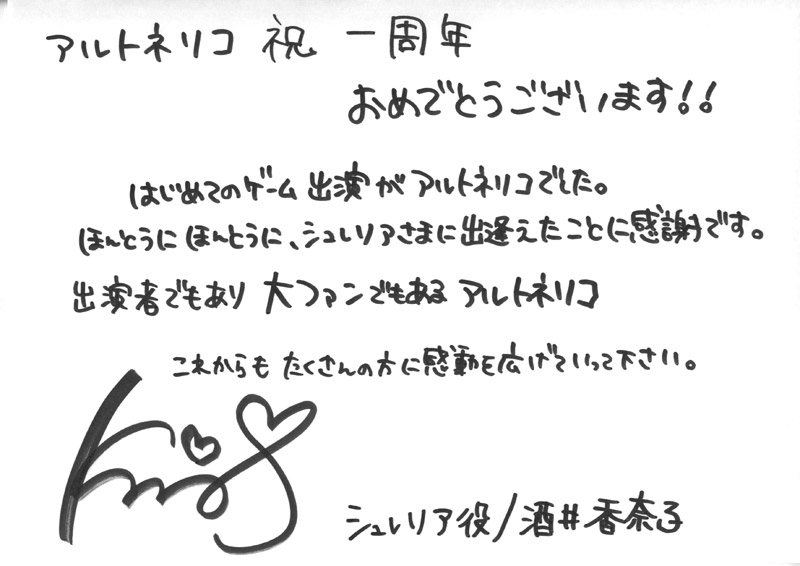 アルトネリコ 祝 一周年
おめでとうございます!!
はじめてのゲーム出演がアルトネリコでした。
ほんとうにほんとうに、シュレリアさまに出逢えたことに感謝です。
出演者でもあり 大ファンでもある アルトネリコ
これからも たくさんの方に感動を広げていって下さい。
シュレリア役/酒井香奈子